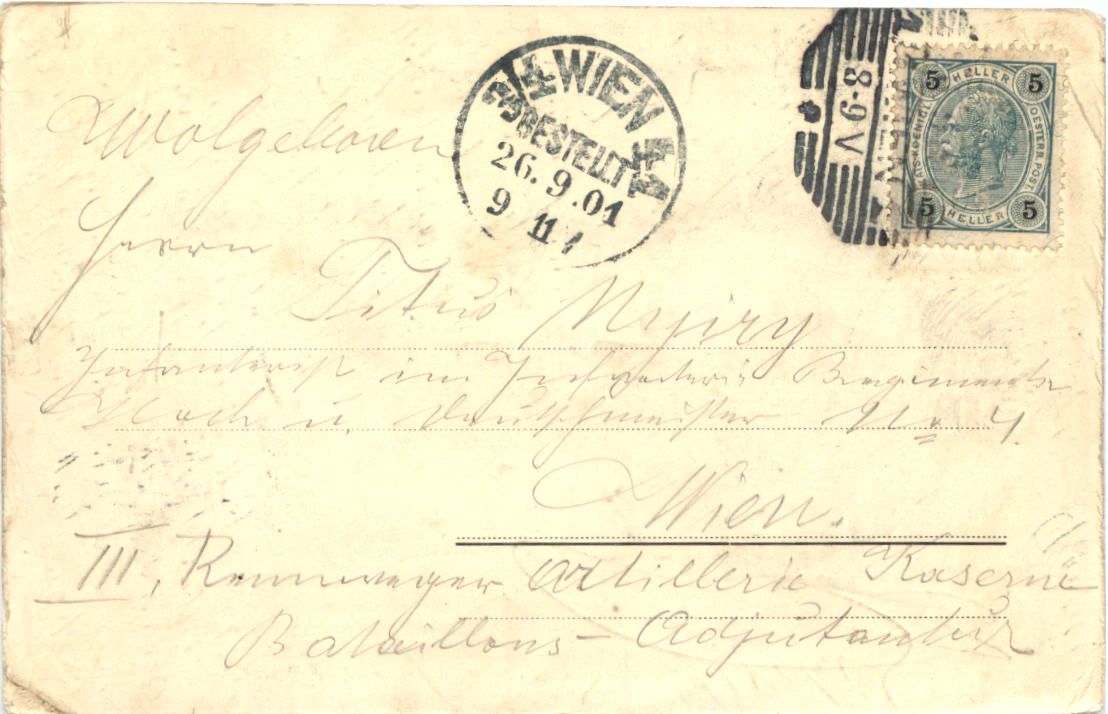 WIEN
BESTELLT
26.9.01
9 11
8-9 V
5 HELLER 5
KAIS. KOENIGL. OESTERR. POST.
5 HELLER 5
Wolgeboren
Herrn
Titus
Infanterist im Infanterie Regimente
Hoch u. Deutschmeister No 4
Wien.
III, Rennweger Artillerie Kaserne
Bataillons-Adjutantur